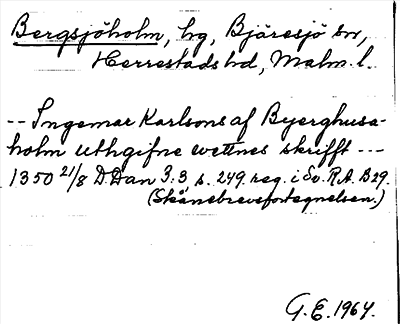 Bergsjöholm, hg, Bjäresjö sn,
Herrestads hd, Malm. l.
-- Ingemar Karlsons af Byerghusa-
holm uthgifne vettnes skrifft ---
1350 21/8 D.Dan 3:3, s. 249. reg. i Sv. R.A. B 29.
(Skånebrevsfortegnelsen.)
G.E. 1964.